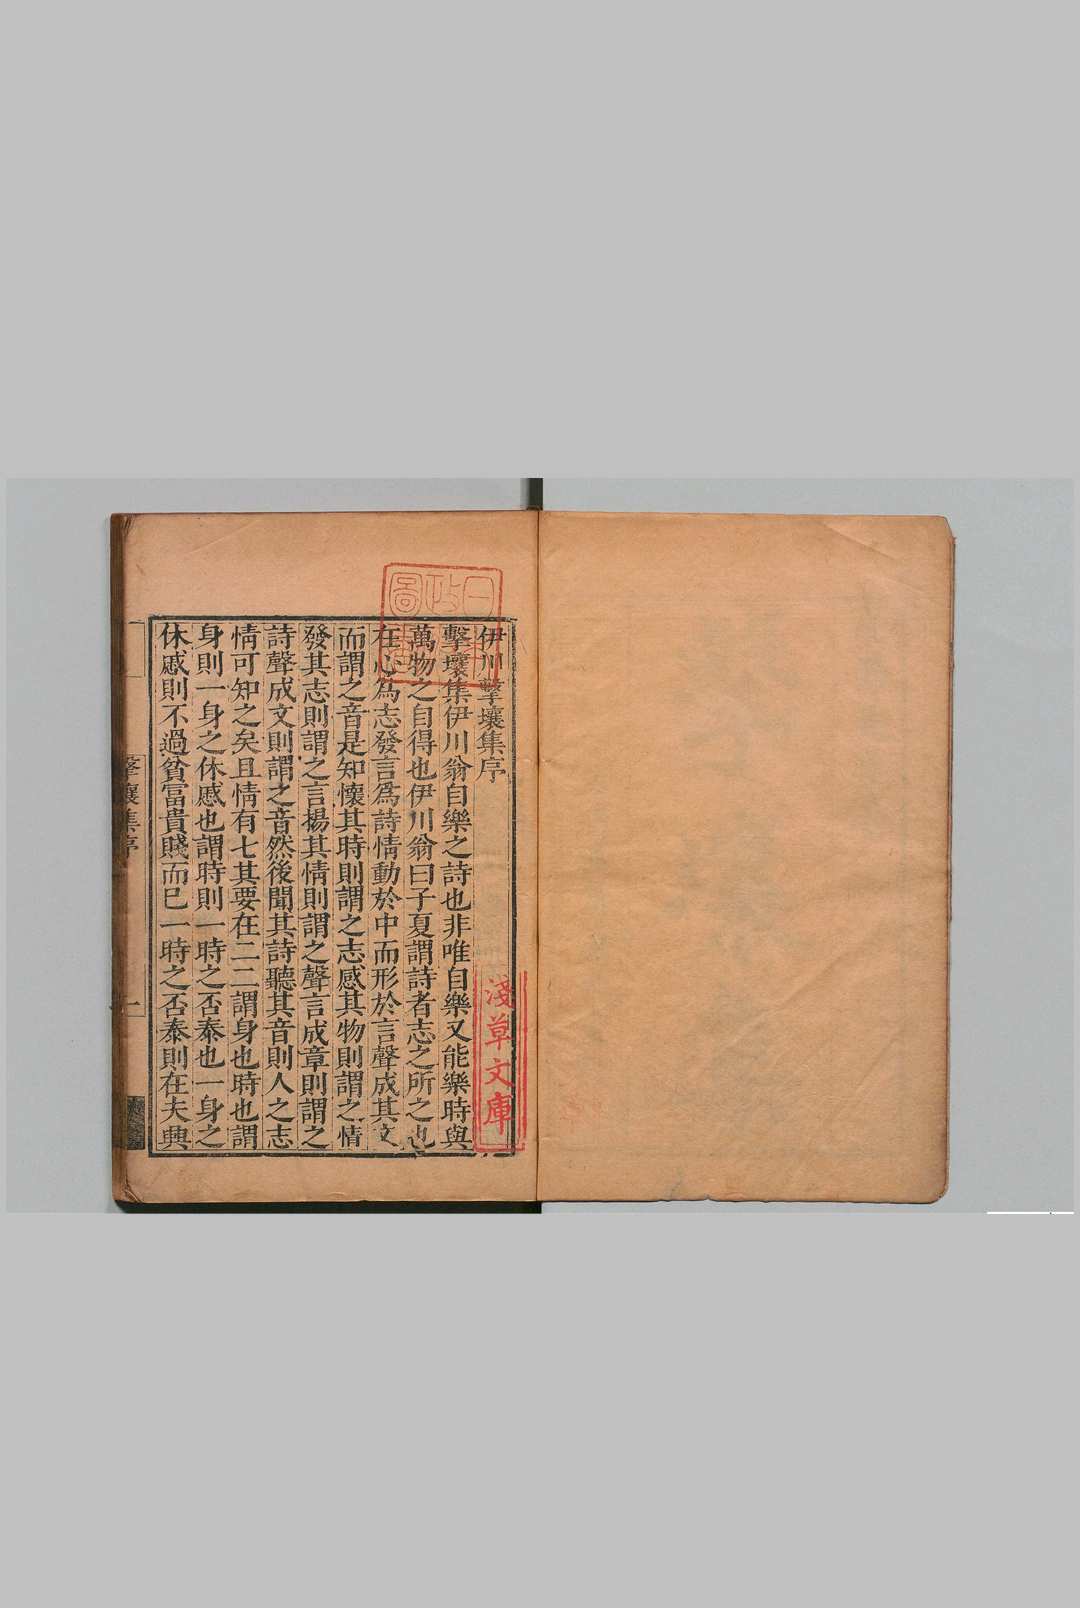 伊川擊壤集序
擊壤集伊川翁自樂之詩也非唯自樂又能樂時與
萬物之自得也伊川翁曰子夏謂詩者志之所之也
在心為志發言爲詩情動於中而形於言聲成其文
而謂之音是知懷其時則謂之志感其物則謂之情
發其志則謂之言揚其情則謂之聲言成章則謂之
詩聲成文則謂之音然後聞其詩聽其音則人之志
情可知之矣且情有七其要在二二謂身也時也謂
身則一身之休慼也謂時則一時之否泰也一身之
休慼則不過貧富貴賤而已一時之否泰則在夫興
擊壤集序
一
淺草文庫
日
政
圖